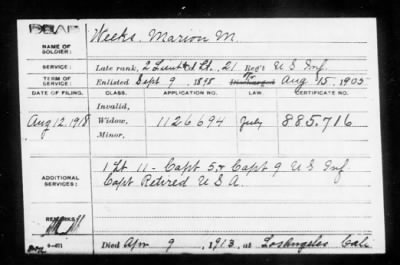 DEAD
NAME OF SOLDIER: Weeks, Marion M.
SERVICE: Late rank, 2 Lieut Co. 21 Reg't U S Inf.
TERM OF SERVICE: Enlisted Sept 9, 1898 To Aug 15, 1905
DATE OF FILING. CLASS. APPLICATION NO. LAW. CERTIFICATE NO.
Invalid,
Aug 12, 1918 Widow, 1126694 July 885.716
Minor,
ADDITIONAL SERVICES: 1 Lt 11 - Capt 5 & Capt 9 U S Inf
Capt Retired U S A.
REMARKS:
Died Apr 9, 1913, at Los Angeles Cal